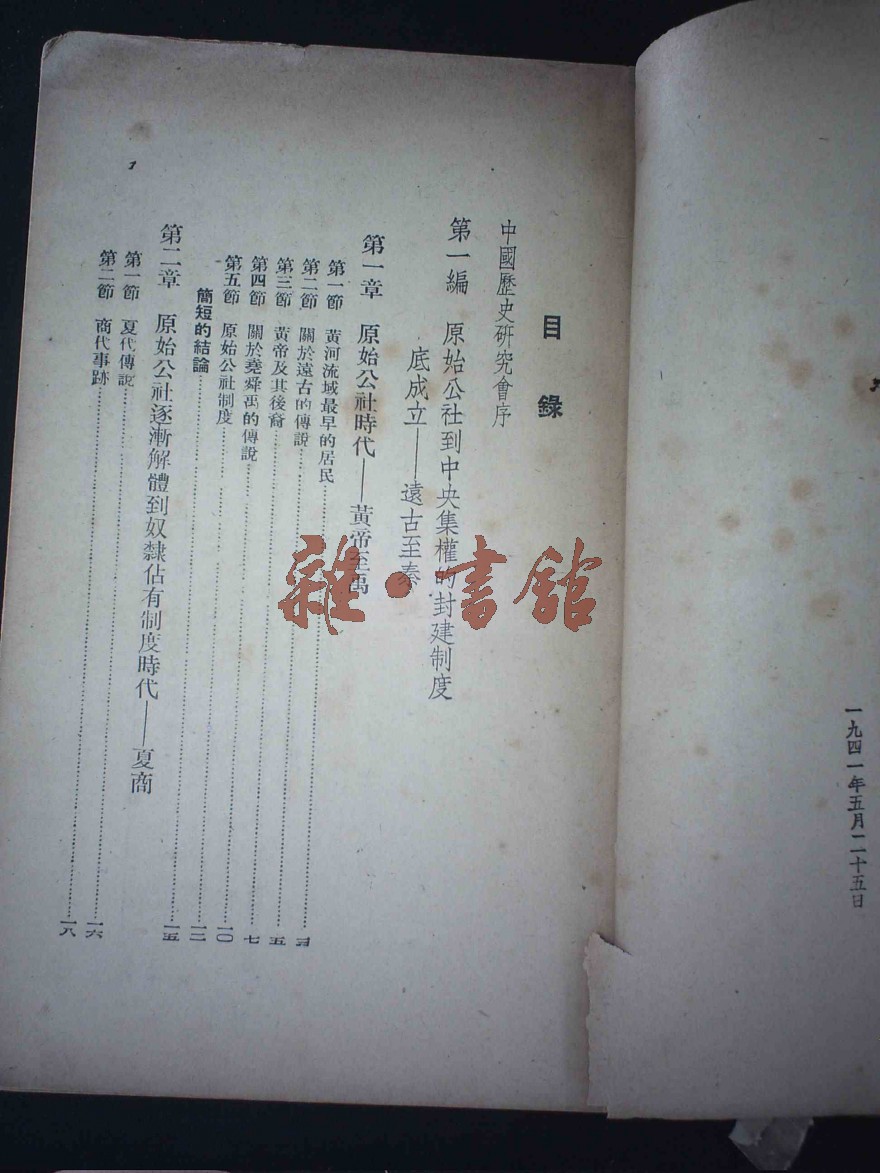 一九四一年五月二十五日
目錄
中國歷史研究會序
第一編 原始公社到中央集權的封建制度
底成立——遠古至秦
第一章 原始公社時代——黃帝至禹
第一節 黃河流域最早的居民
第二節 關於遠古的傳說 五
第三節 黃帝及其後裔 七
第四節 關於堯舜禹的傳說 一〇
第五節 原始公社制度 一二
簡短的結論 一五
第二章 原始公社逐漸解體到奴隸佔有制度時代——夏商
第一節 夏代傳說 一六
第二節 商代事跡 一八
1
雜·書館